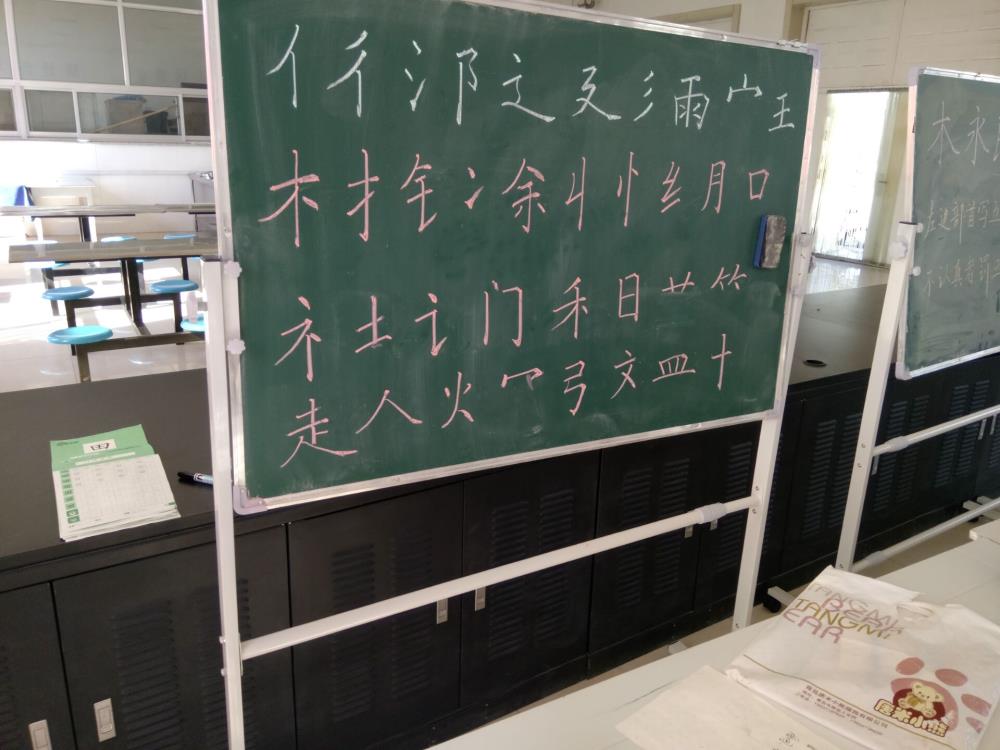 亻 彳 氵 阝 辶 廴 彡 雨 宀 王
木 扌 钅 冫 涂 丬 忄 纟 月 口
礻 土 讠 门 禾 日 艹 ⺮
走 人 火 冖 弓 文 皿 十
木 永
左边部首写
不认真者罚
田
TANGMI
BEAR
TANGMI
EAR
唐米小熊